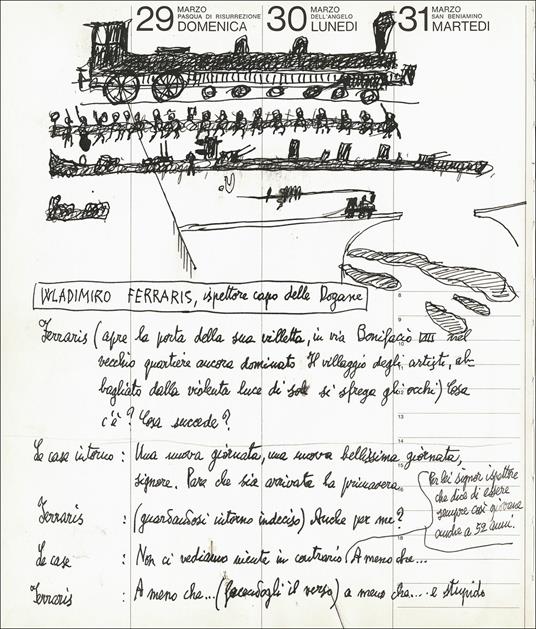 29 MARZO PASQUA DI RISURREZIONE DOMENICA
30 MARZO DELL'ANGELO LUNEDI
31 MARZO SAN BENIAMINO MARTEDI
WLADIMIRO FERRARIS, ispettore capo delle Dogane
Ferraris (apre la porta della sua villetta, in via Bonifacio VIII nel
vecchio quartiere ancora dominato Il villaggio degli artisti, ab-
bagliato dalla violenta luce di sole si sfrega gli occhi) Cosa
c'è? Cosa succede?
Le case intorno: Una nuova giornata, una nuova bellissima giornata,
signore. Pare che sia arrivata la primavera
Per lei signor ispettore
che dice di essere
sempre così giovane
anche a 52 anni.
Ferraris: (guardandosi intorno indeciso) Anche per me?
Le case: Non ci vediamo niente in contrario A meno che...
Ferraris: A meno che... (facendogli il verso) a meno che... e stupido
8
9
10
11
12
13
14
15
16
18